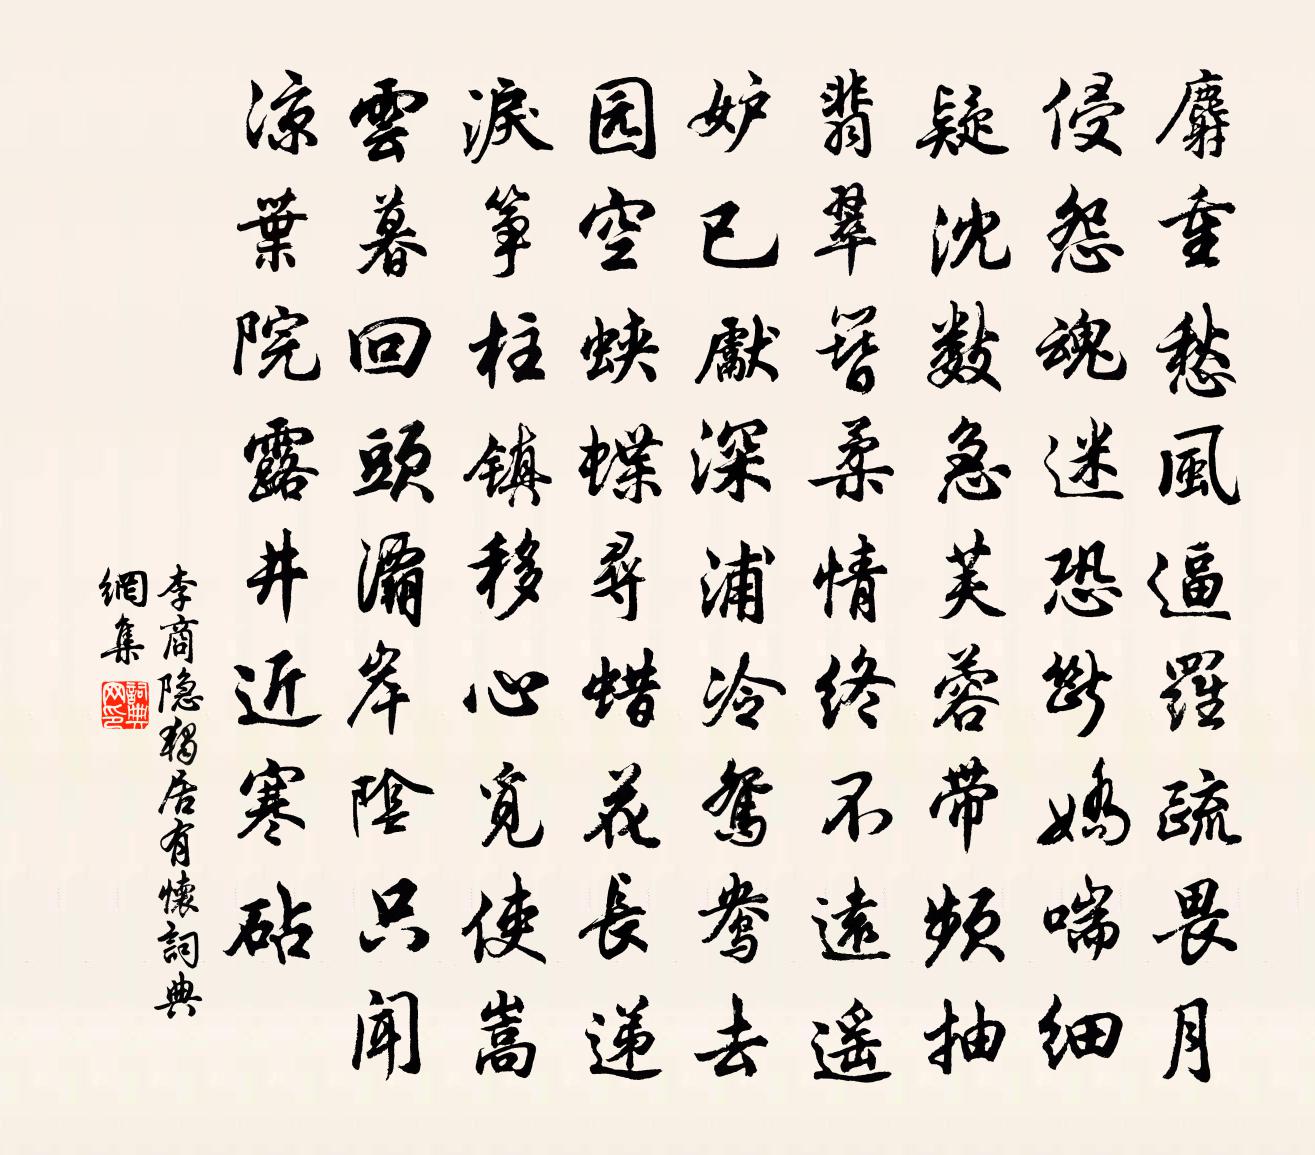 麝重愁風逼羅疏畏月
侵怨魂迷恐斷嬌喘細
疑沈數急芙蓉带頻抽
翡翠簪柔情終不遠遥
妒已獻深浦冷鴛鴦去
园空蛺蝶尋蜡花長递
淚箏柱鎮移心覓使嵩
雲暮回頭灞岸陰只聞
涼葉院露井近寒砧
李商隐獨居有懷詞典
網集
詞典
网印